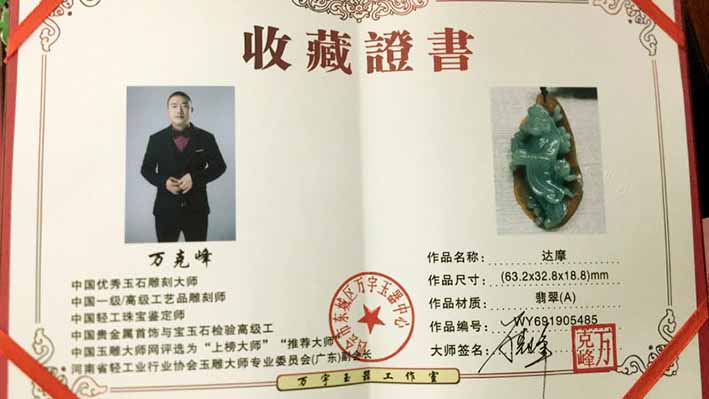 收藏證書
万克峰
中国优秀玉石雕刻大师
中国一级/高级工艺品雕刻师
中国轻工珠宝鉴定师
中国贵金属首饰与宝玉石检验高级工
中国玉雕大师网评选为“上榜大师”“推荐大师”
河南省轻工业行业协会玉雕大师专业委员会(广东)副会长
作品名称: 达摩
作品尺寸: (63.2x32.8x18.8)mm
作品材质: 翡翠(A)
作品编号: WY691905485
大师签名:
万克峰
东城区万字玉器中心
万字玉器工作室